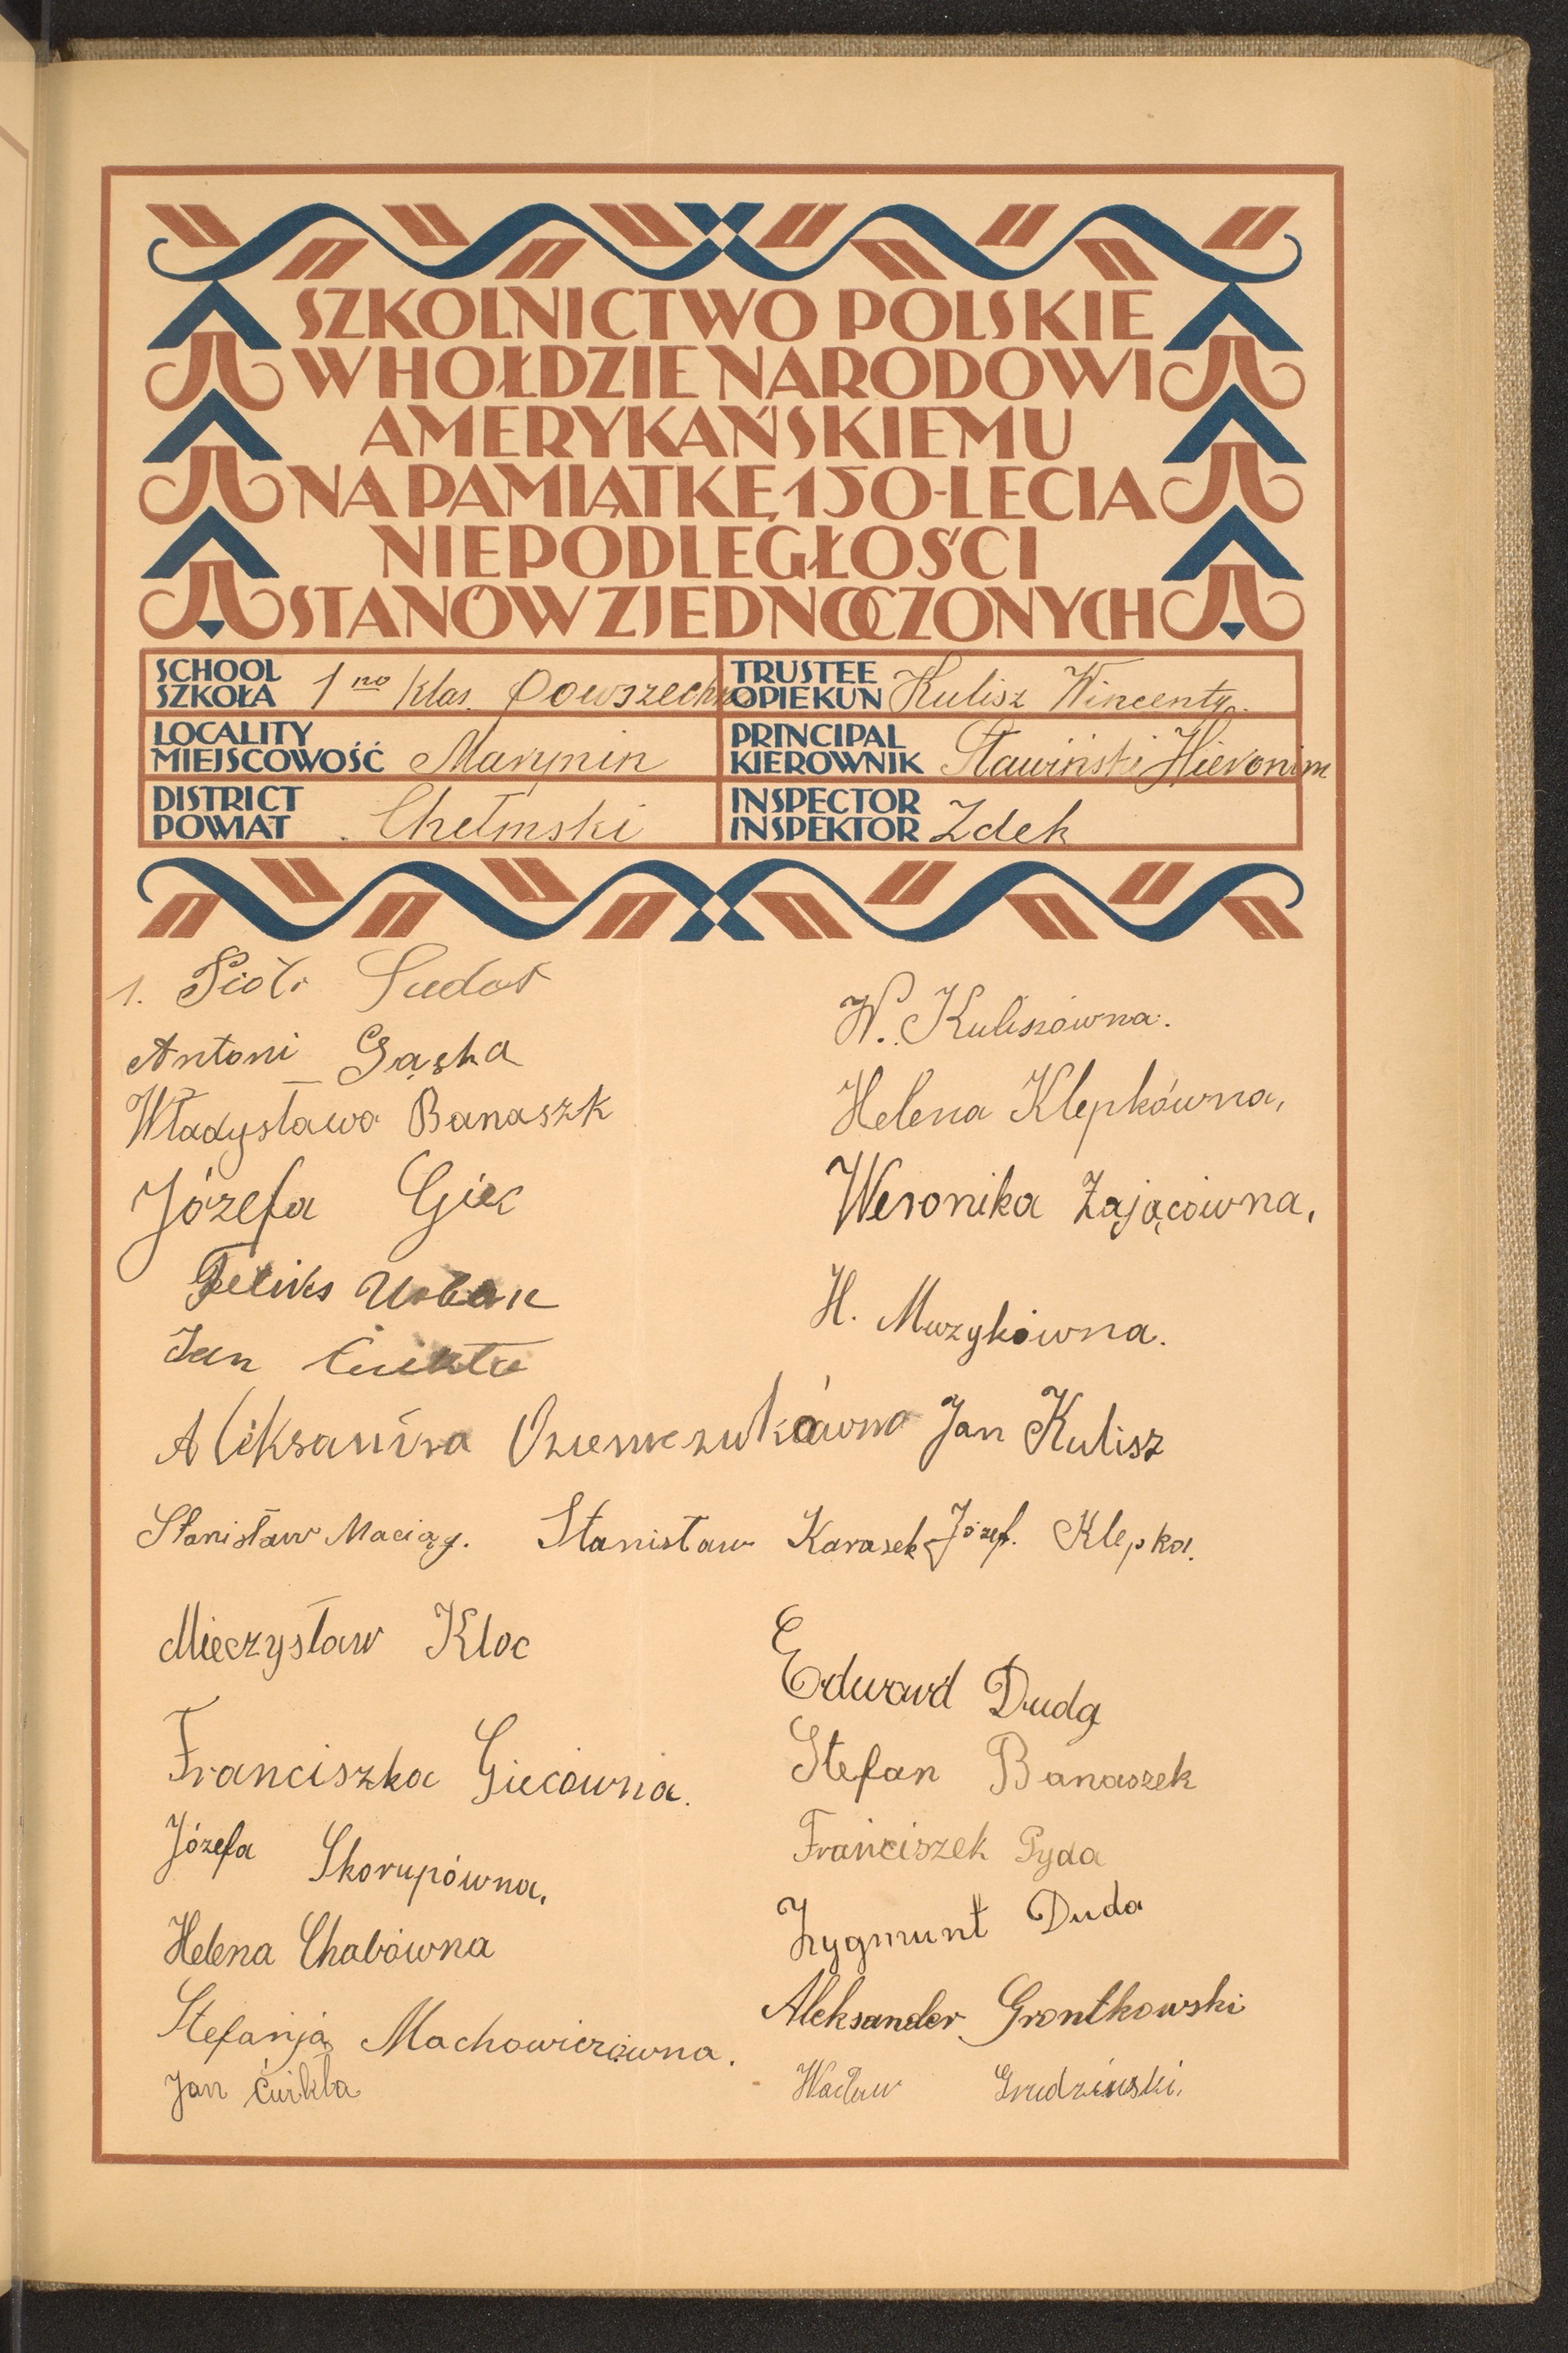 SZKOLNICTWO POLSKIE
W HOŁDZIE NARODOWI
AMERYKAŃSKIEMU
NA PAMIĄTKĘ 150-LECIA
NIEPODLEGŁOŚCI
STANÓW ZJEDNOCZONYCH
SCHOOL
SZKOŁA 1 no klas. Powszechna
TRUSTEE
OPIEKUN Kulisz Wincenty.
LOCALITY
MIEJSCOWOŚĆ Marynin
PRINCIPAL
KIEROWNIK Sławiński Hieronim
DISTRICT
POWIAT Chełmski
INSPECTOR
INSPEKTOR Zdek
1. Piotr Sudoł
W. Kuliszówna.
Antoni Gąska
Helena Klepkówna,
Władysława Banaszk
Weronika Zającówna,
Józefa Giec
Feliks Urban
H. Muzykówna.
Jan Ćwikła
Aleksandra
Jan Kulisz
Stanisław Maciąg. Stanisław Karasek Józef. Klepka.
Mieczysław Kloc
Edward Duda
Franciszka Giecówna.
Stefan Banaszek
Józefa Skorupówna,
Franciszek Pyda
Helena Chabówna
Zygmunt Duda
Stefanja Machowiczówna.
Aleksander Grontkowski
Jan Ćwikła
Wacław Grudziński,